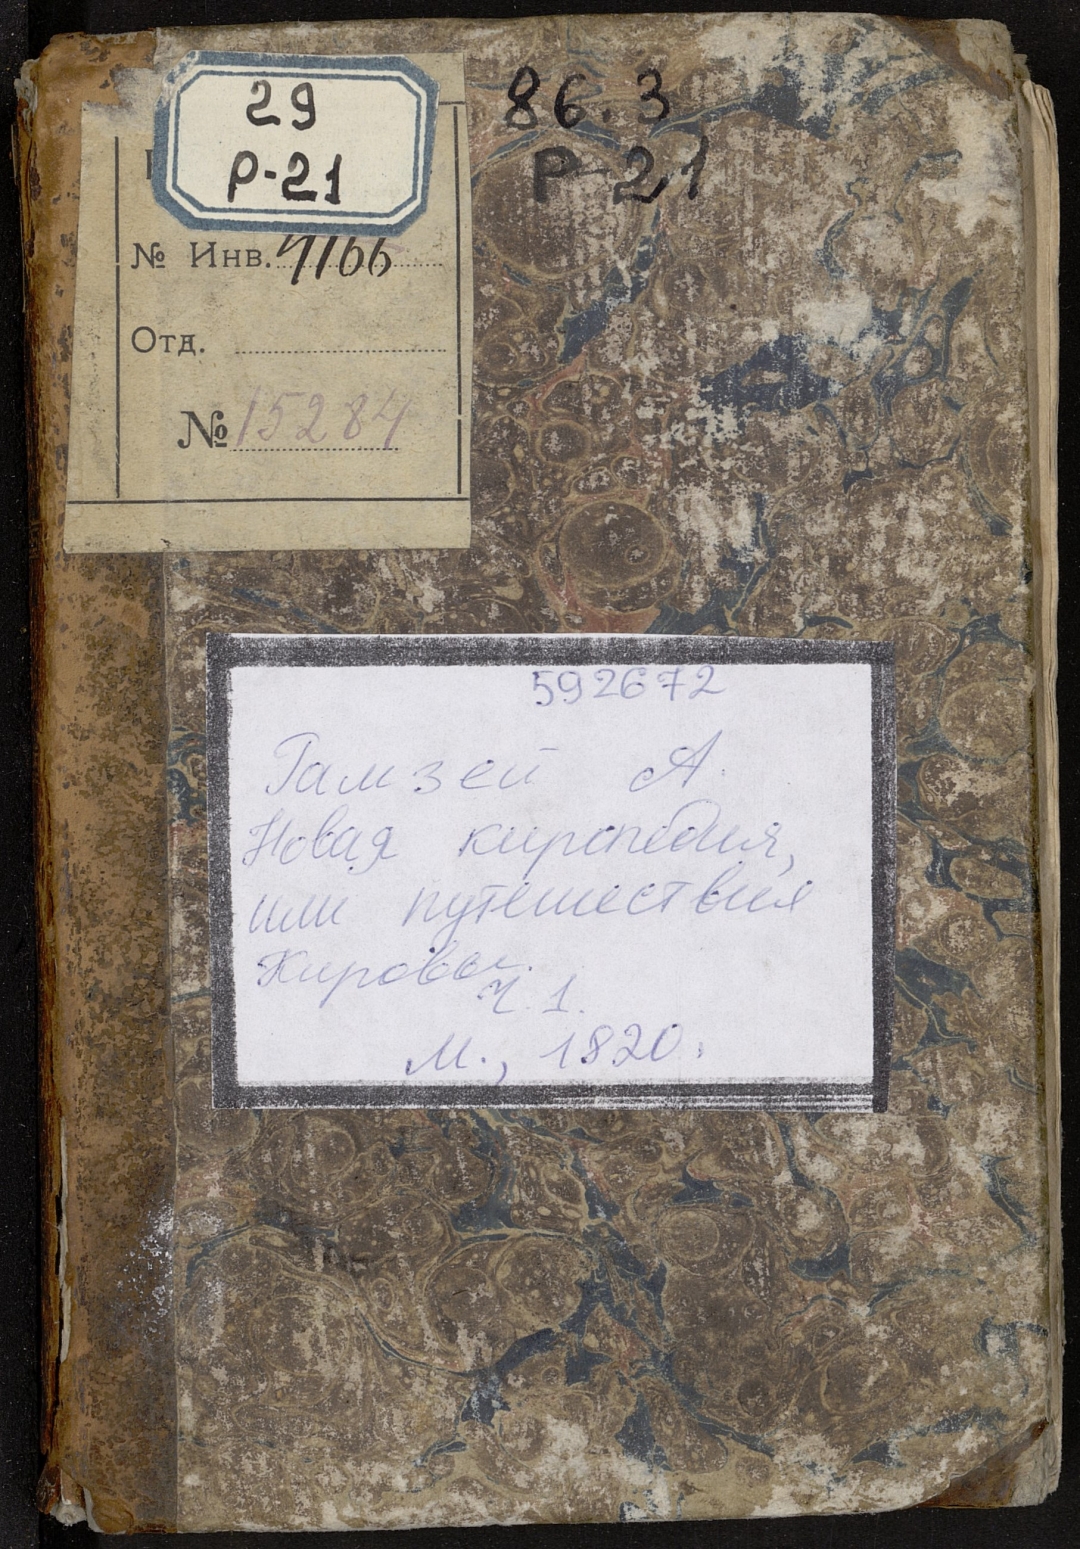 29
Р-21
86.3
Р-21
№ Инв. 4166
Отд.
№ 15284
592672
Рамзей А.
Новая киропедия,
или путешествия
Кировы.
Ч. 1.
М., 1820.